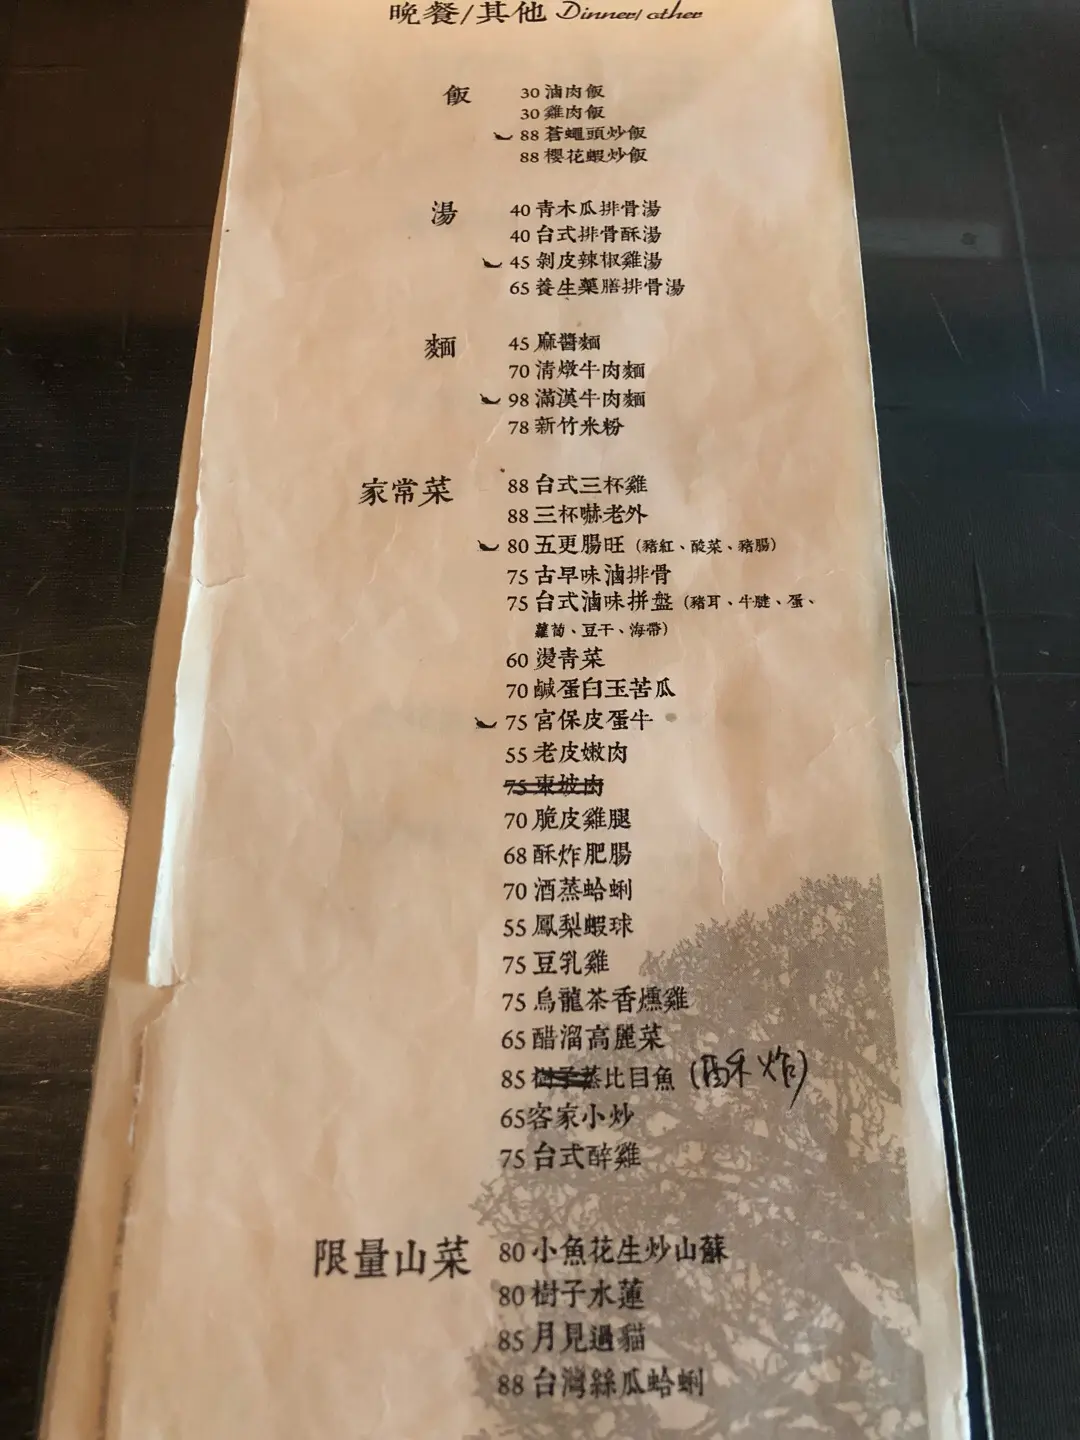 晚餐/其他 Dinner/other
飯
30 滷肉飯
30 雞肉飯
88 蒼蠅頭炒飯
88 櫻花蝦炒飯
湯
40 青木瓜排骨湯
40 台式排骨酥湯
45 剝皮辣椒雞湯
65 養生藥膳排骨湯
麵
45 麻醬麵
70 清燉牛肉麵
98 滿漢牛肉麵
78 新竹米粉
家常菜
88 台式三杯雞
88 三杯嚇老外
80 五更腸旺（豬紅、酸菜、豬腸）
75 古早味滷排骨
75 台式滷味拼盤（豬耳、牛腱、蛋、
蘿蔔、豆干、海帶）
60 燙青菜
70 鹹蛋白玉苦瓜
75 宮保皮蛋牛
55 老皮嫩肉
75 東坡肉
70 脆皮雞腿
68 酥炸肥腸
70 酒蒸蛤蜊
55 鳳梨蝦球
75 豆乳雞
75 烏龍茶香燻雞
65 醋溜高麗菜
85 樹子蒸比目魚 (酥炸)
65客家小炒
75 台式醉雞
限量山菜
80 小魚花生炒山蘇
80 樹子水蓮
85 月見過貓
88 台灣絲瓜蛤蜊